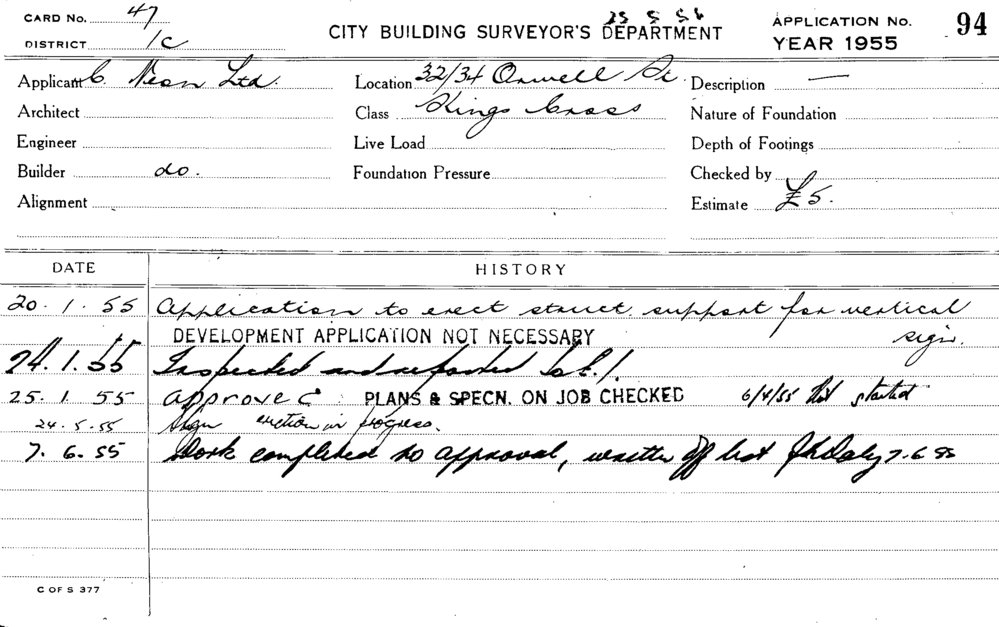 CARD No. 47
DISTRICT 1C
CITY BUILDING SURVEYOR'S DEPARTMENT
APPLICATION No. 94
YEAR 1955
Applicant C. Neon Ltd.
Location 32/34 Orwell St.
Description —
Architect
Class Kings Cross
Nature of Foundation
Engineer
Live Load
Depth of Footings
Builder do.
Foundation Pressure
Checked by
Alignment
Estimate £5.
DATE HISTORY
20. 1. 55 Application to erect struct. support for vertical
sign.
DEVELOPMENT APPLICATION NOT NECESSARY
24. 1. 55 Inspected and reported
25. 1. 55 approved PLANS & SPECN. ON JOB CHECKED 6/4/55 Not started
24. 5. 55 Sign erection in progress.
7. 6. 55 Work completed to approval, written off list 7. 6 55
C OF S 377